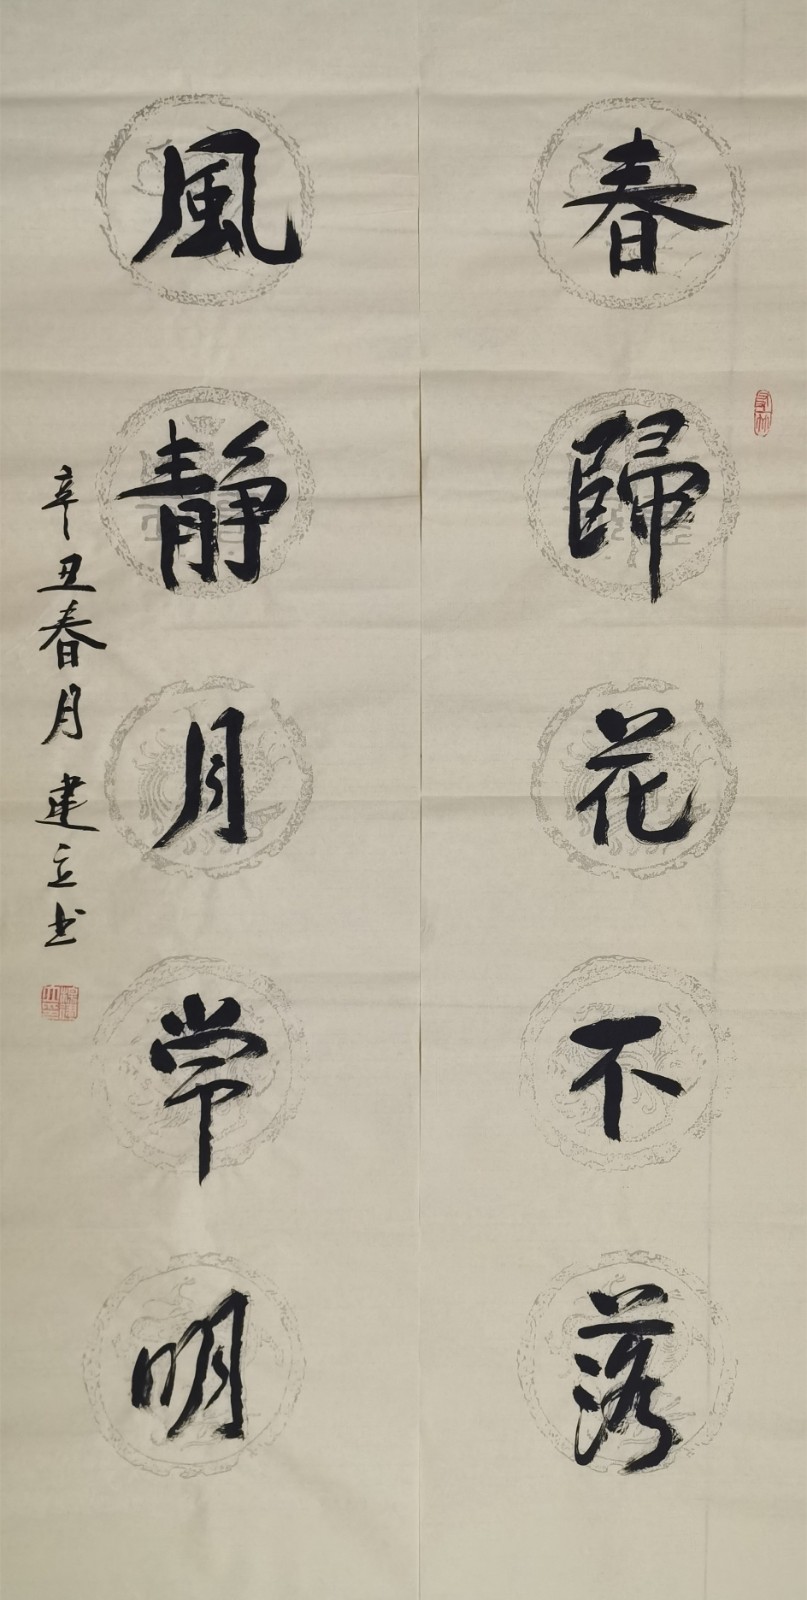 春歸花不落
風靜月常明
辛丑春月建立书